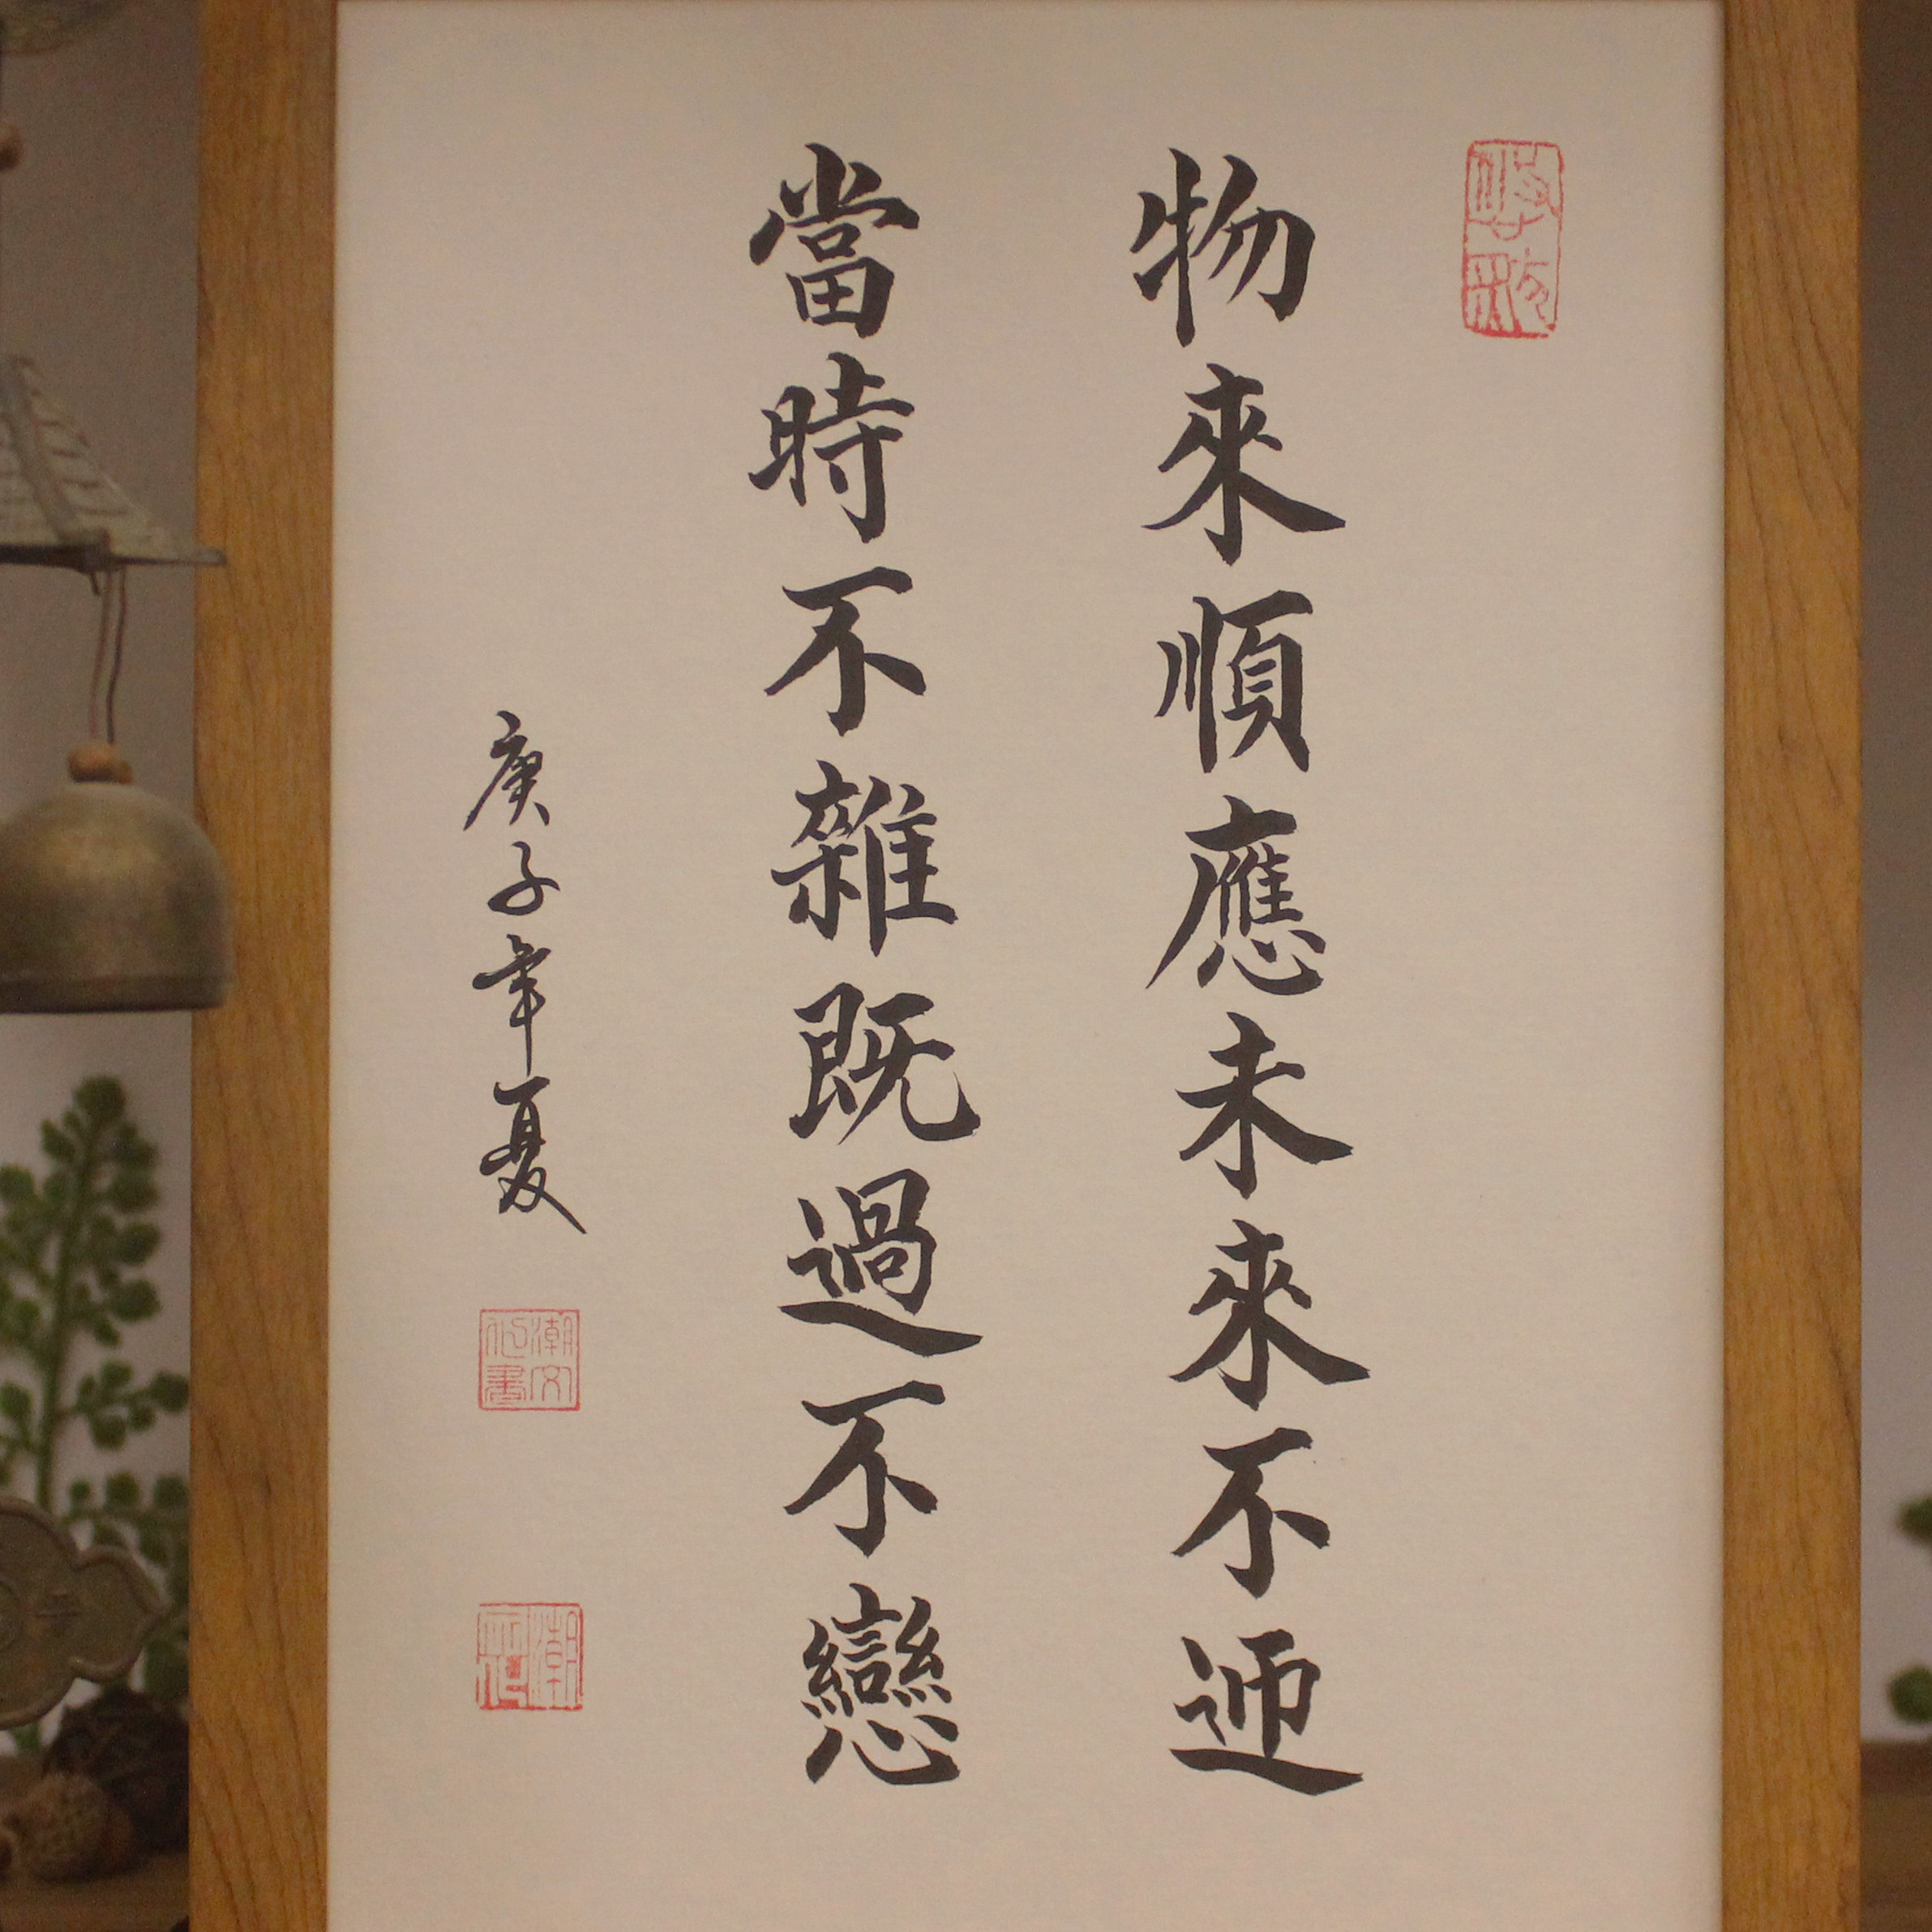 物來順應未來不迎
當時不雜既過不戀
庚子年夏